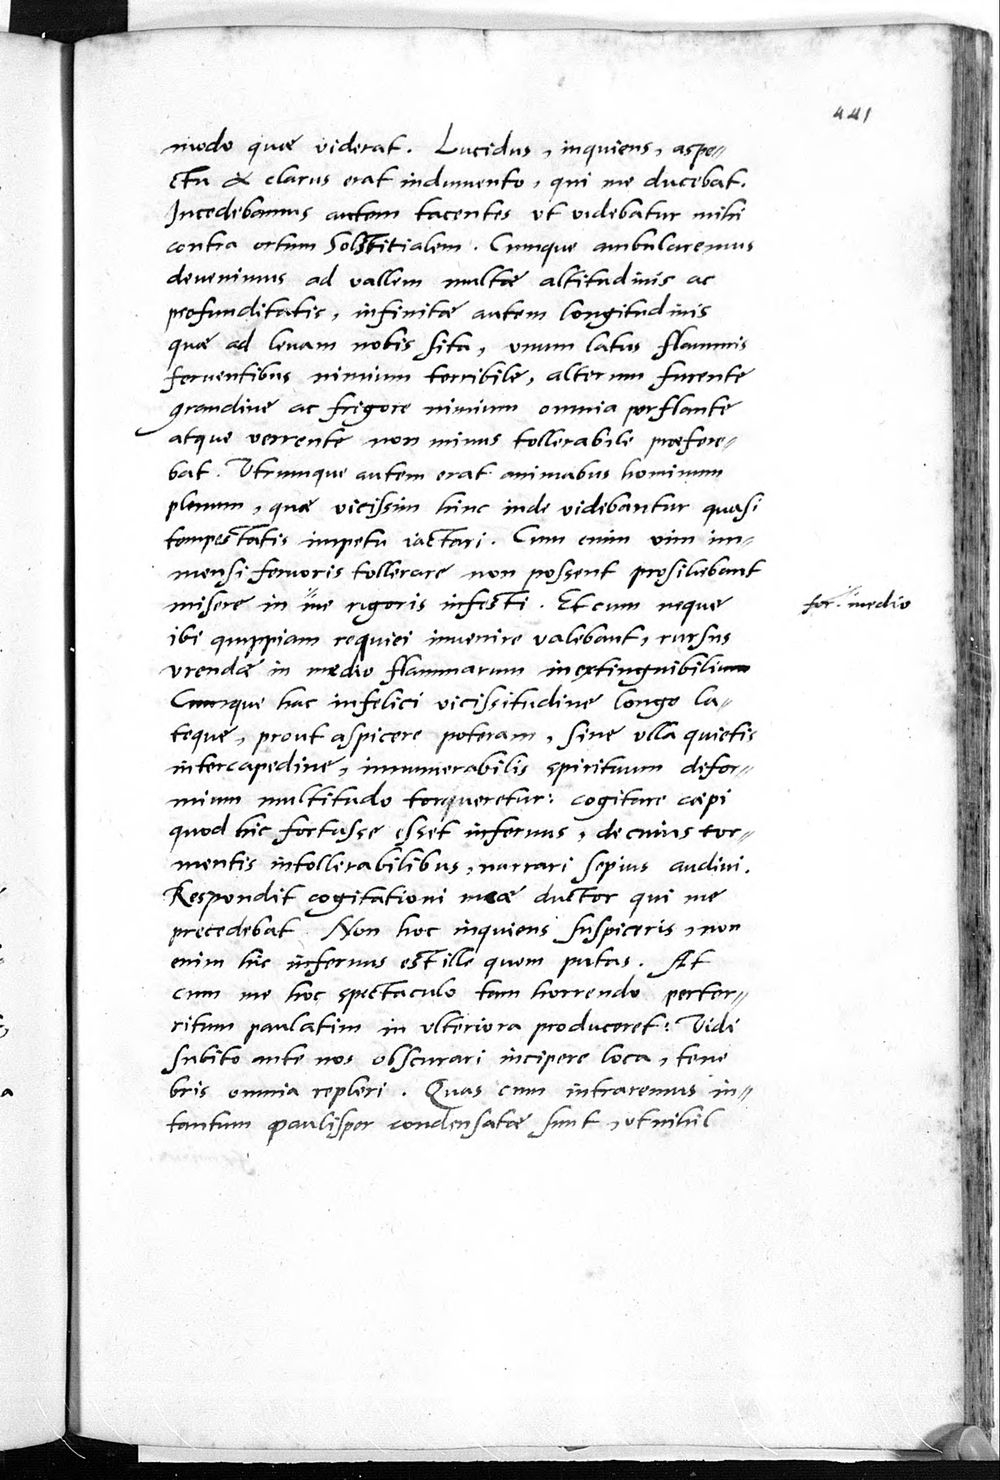 441
modo quæ viderat. Lucidus, inquiens, aspe=
ctu & clarus erat indumento, qui me ducebat.
Incedebamus autem tacentes ut videbatur mihi
contra ortum Solstitialem. Cumque ambularemus
devenimus ad vallem multæ altitudinis ac
profunditatis, infinitæ autem longitudinis
quæ ad levam nobis sita, unum latus flammis
ferventibus nimium terribile, alterum furente
grandine ac frigore nimium omnia perflante
atque verrente non minus tollerabile præfere=
bat. Utrumque autem erat animabus hominum
plenum, quæ vicissim hinc inde videbantur quasi
tempestatis impetu iactari. Cum enim vim im=
mensi fervoris tollerare non possent prosiliebant
misere in me rigoris infesti. Et cum neque
for. medio
ibi quippiam requiei invenire valebant, rursus
urendæ in medio flammarum inextinguibilium
Cumque hac infelici vicissitudine longe la=
teque, prout aspicere poteram, sine ulla quietis
intercapedine, innumerabilis spirituum defor=
mium multitudo torqueretur: cogitare cæpi
quod hic fortasse esset infernus, de cuius tor=
mentis intollerabilibus, narrari sepius audivi.
Respondit cogitationi meæ ductor qui me
precedebat. Non hoc inquiens suspiceris, non
enim hic infernus est ille quem putas. At
cum me hoc spectaculo tam horrendo perter=
ritum paulatim in ulteriora produceret: Vidi
subito ante nos obscurari incipere loca, tene
bris omnia repleri. Quas cum intraremus in=
tantum paulisper condensatæ sunt, ut nihil